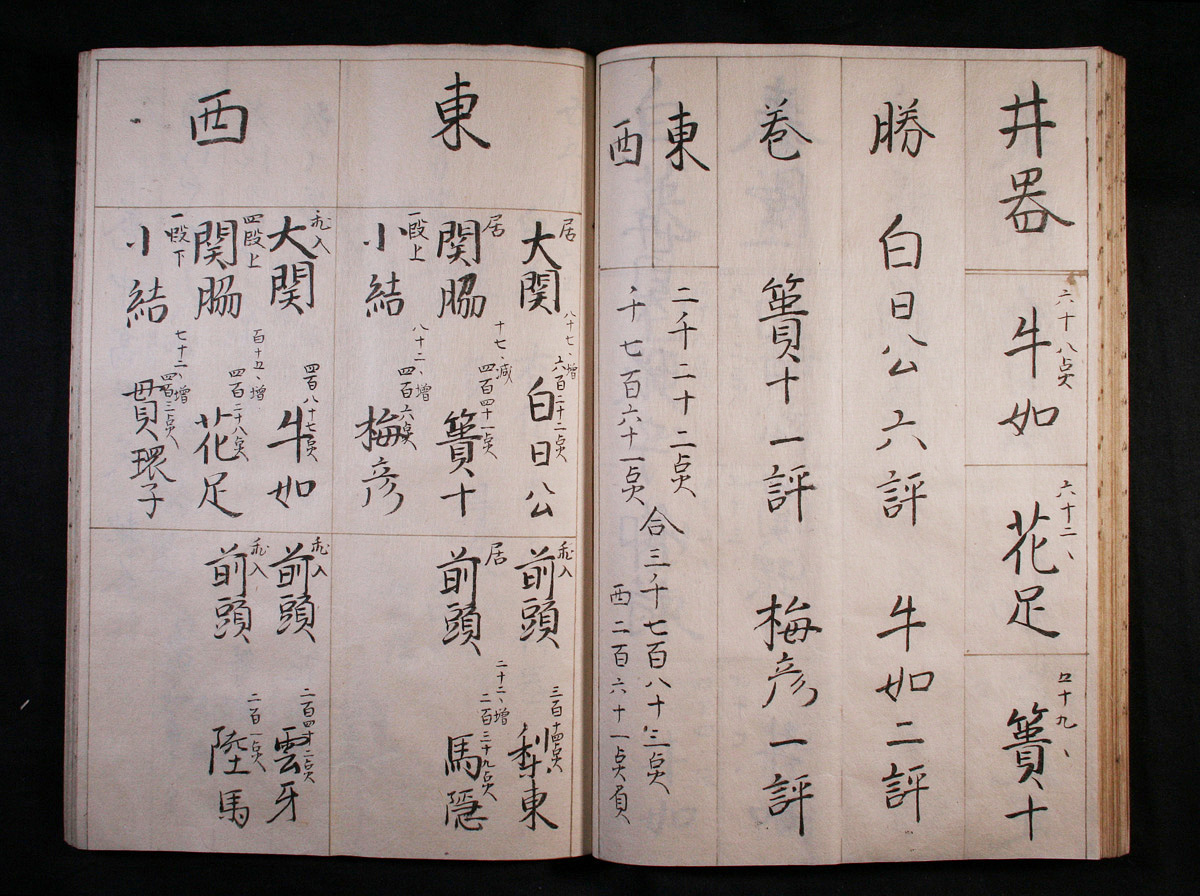 井器
六十八点
牛如
六十二、
花足
四十九、
簣十
勝 白日公六評 牛如二評
巻 簣十一評 梅彦一評
東 二千二十二点
西 千七百六十一点
合三千七百八十三点
西二百六十一点負
東
居
大関
八十七、増
六百二十二点
白日公
居
関脇
十七、減
四百四十一点
簣十
一段上
小結
八十二、増
四百六点
梅彦
飛入
前頭
三百十四点
梨東
居
前頭
二十二、増
二百三十九点
馬隠
西
飛入
大関
四百八十七点
牛如
四段上
関脇
百十五、増
四百二十八点
花足
一段下
小結
七十二、増
四百三点
貫環子
飛入
前頭
二百四十二点
雲牙
飛入
前頭
二百一点
陸馬